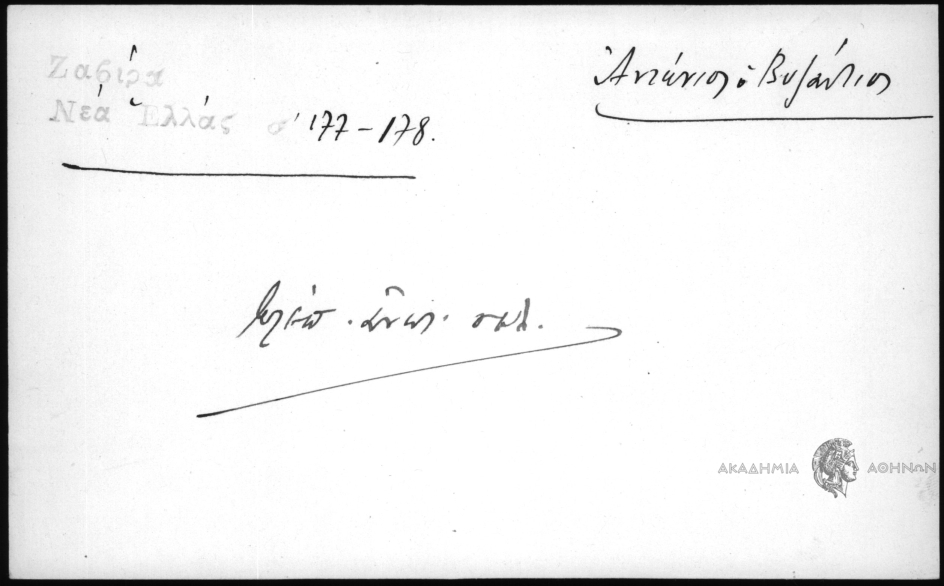 Ζαβίρα
Νέα Ἑλλάς σ. 177-178.
Ἀντώνιος ὁ Βυζάντιος
ἄνω. σελ.
ΑΚΑΔΗΜΙΑ ΑΘΗΝΩΝ